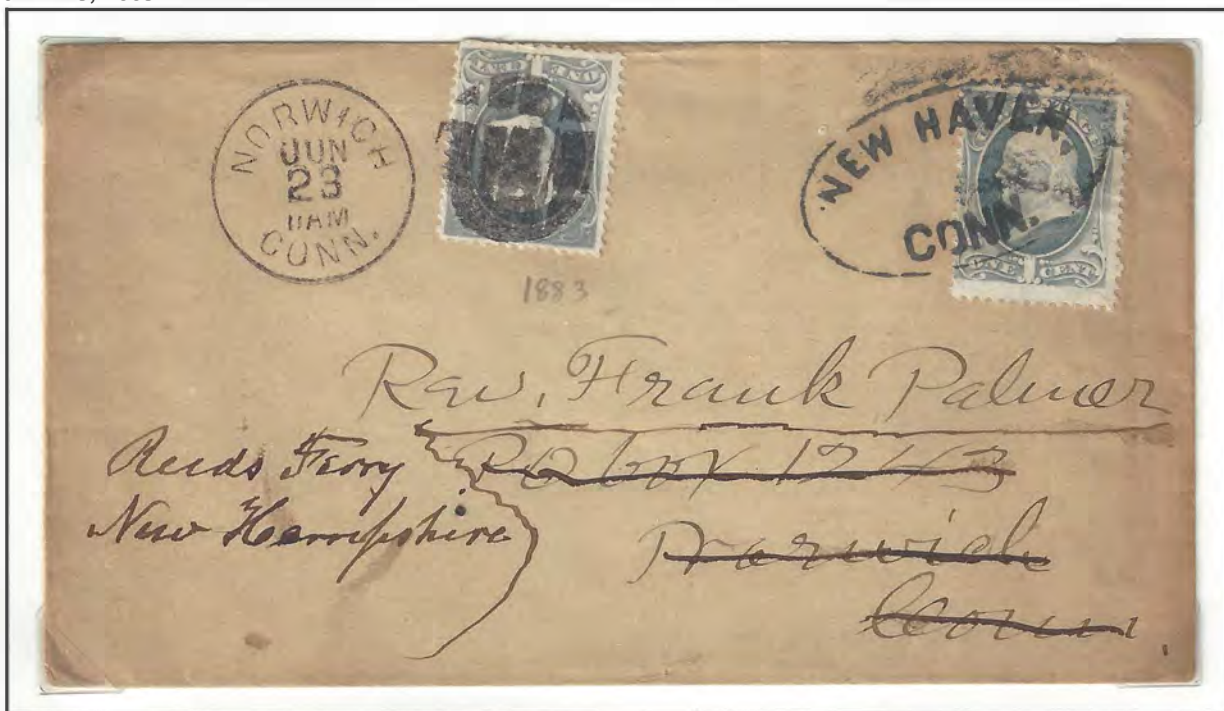 NORWICH
JUN
23
11AM
CONN.
1883
NEW HAVEN,
CONN.
Rev. Frank Palmer
PO box 1243
Norwich
Conn
Reeds Ferry
New Hempshire